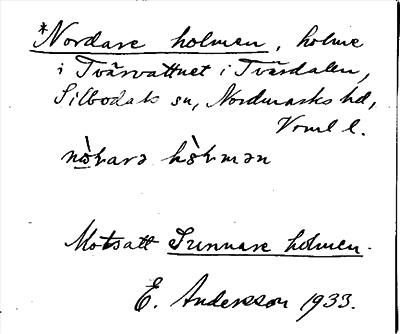 *Nordare holmen, holme
i Tvärvattnet i Tvärdalen,
Silbodals sn, Nordmarks hd,
Vrml l.
nò̱ꞎarə hò̱ꞎmən
Motsatt Sunnare holmen.
E. Andersson 1933.